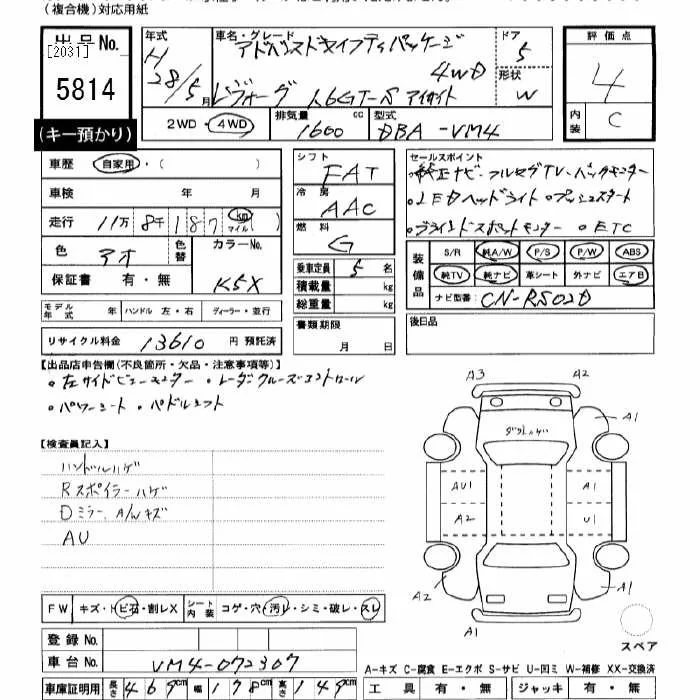 (複合機)対応用紙
出品No.
[2031]
5814
(キー預かり)
年式
H
28/5月
車名・グレード
アドバンスドセイフティパッケージ
4WD
レヴォーグ 1.6GT-S アイサイト
ドア
5
形状
W
2WD・4WD
排気量
1600 cc
型式
DBA-VM4
評価点
4
内装
C
車歴 自家用・( )
車検 年 月
走行 11万8千187 km マイル( )
色 アオ 色替 カラーNo. K5X
保証書 有・無
モデル年式 年 ハンドル 左・右 ディーラー・並行
リサイクル料金 13610 円預託済
シフト
FAT
冷房
AAC
燃料
G
乗車定員 5 名
積載量 kg
総重量 kg
書類期限
月 日
セールスポイント
・純正ナビ・フルセグTV・バックモニター
・LEDヘッドライト・プッシュスタート
・ブラインドスポットモニター ・ETC
装備品
S/R 純A/W P/S P/W ABS
純TV 純ナビ 革シート 外ナビ エアB
ナビ型番: CN-R502D
後日品
【出品店申告欄(不良箇所・欠品・注意事項等)】
・左サイドビューモニター ・レーダークルーズコントロール
・パワーシート ・パドルシフト
【検査員記入】
ハンドルハゲ
Rスポイラーハゲ
Dミラー、A/Wキズ
AU
A3 A2
A1
AU1 A1
A2 U1
A2 A1
A1
スペア
FW キズ・ヒビ石・割レX シート内装 コゲ・穴・汚レ・シミ・破レ・スレ
登録No.
車台No. VM4-072307
車庫証明用 長さ 469cm 幅 178cm 高さ 149cm
A-キズ C-腐食 E-エクボ S-サビ U-凹ミ W-補修 XX-交換済
工具 有・無 ジャッキ 有・無